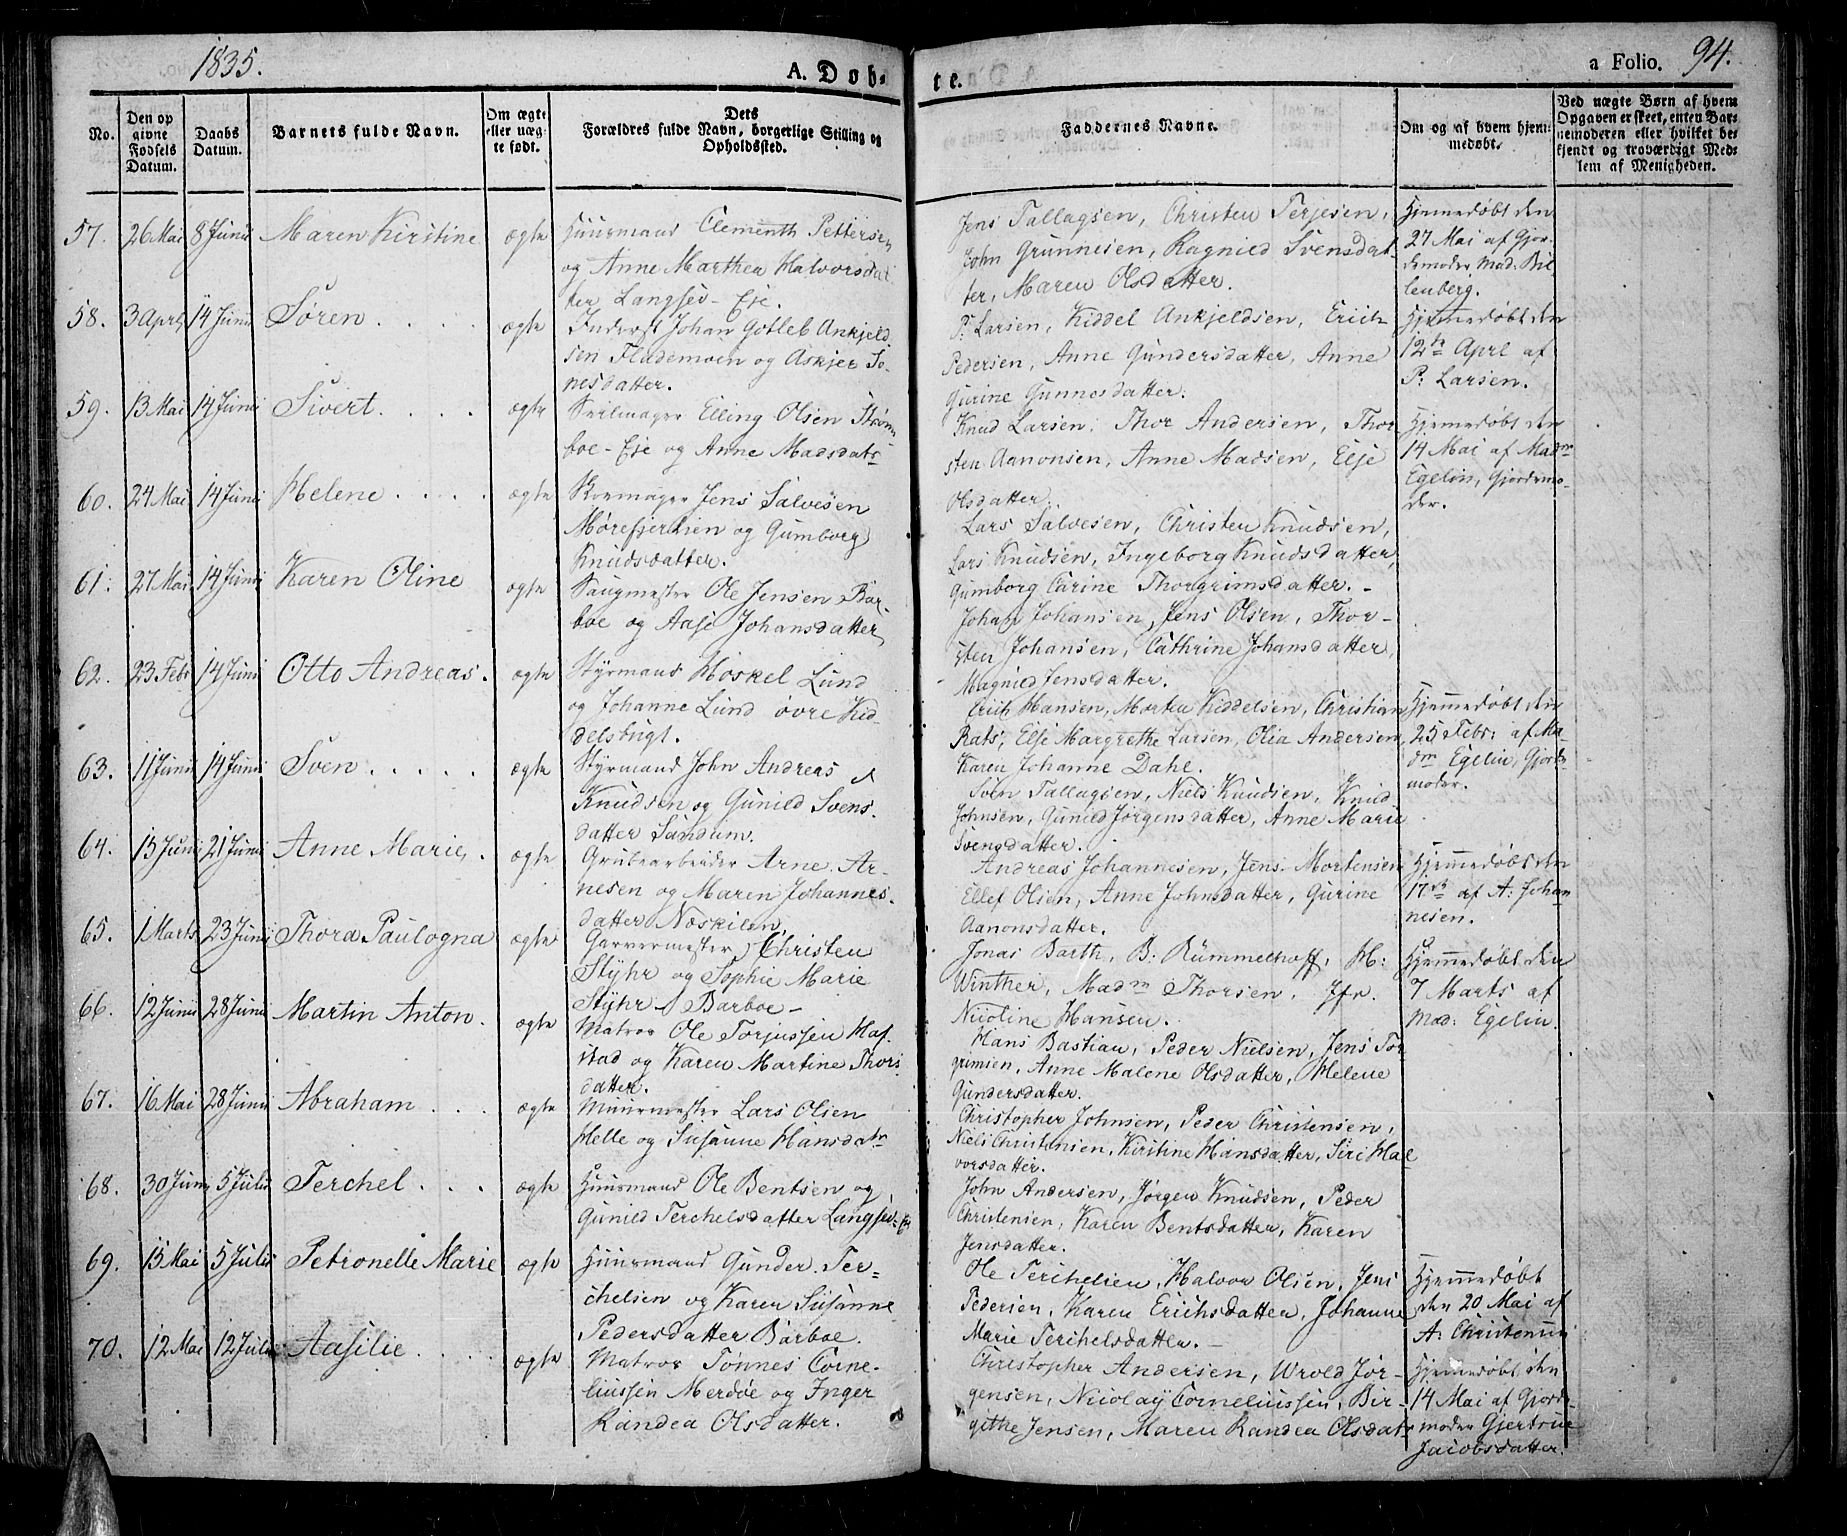 1835.
A. Døb-
te.
a Folio. 94.
No.
Den op
givne
Fødsels
Datum.
Daabs
Datum.
Barnets fulde Navn.
Om ægte
eller uæg-
te født.
Dets
Forældres fulde Navn, borgerlige Stilling og
Opholdssted.
Faddernes Navne.
Om og af hvem hjem-
medøbt.
Ved uægte Børn af hvem
Opgaven er skeet, enten Bar-
nemoderen eller hvilket be-
kjendt og troværdigt Med-
lem af Menigheden.
57. 26 Mai 8 Junii Maren Kirstine ægte
Huusmand Clementh Pettersen
og Anne Marthea Halvorsdat
ter Langsev-Eje.
Jens Tallagsen, Christen Terjesen,
John Grunnesen, Ragnild Svensdat-
ter, Maren Olsdatter.
Hjemmedøbt den
27 Mai af Gjor-
demoder Mad: Bil-
lenberg.
58. 3 April 14 Junii Søren . . . . ægte
Inderst Johan Gotleb Ankjeld
sen Flademoen og Askjer Jo-
nesdatter.
P: Larsen, Kiddel Ankjeldsen, Erich
Pedersen, Anne Gundersdatter, Anne
Gurine Gunnesdatter.
Hjemmedøbt den
12te April af
P: Larsen.
59. 13 Mai 14 Junii Sivert . . . . ægte
Seilmager Elling Olsen Strøm
boe-Eje og Anne Madsdatr
Knud Larsen, Thor Andersen, Thor
sten Aanonsen, Anne Madsen, Elje
Olsdatter.
Hjemmedøbt den
14 Mai af Madm
Egelin, Gjordemo-
der.
60. 24 Mai 14 Junii Helene . . . . ægte
Skomager Jens Salvesen
Mørefjerchen og Gumborg
Knudsdatter.
Lars Salvesen, Christen Knudsen,
Lars Knudsen, Ingeborg Knudsdatter,
Gumborg Carine Thorgrimsdatter.-
61. 27 Mai 14 Junii Karen Oline ægte
Saugmester Ole Jensen Bar-
boe og Aase Johansdatter
Johan Johansen, Jens Olsen, Thor-
sten Johansen, Cathrine Johansdatter,
Magnild Jensdatter.
62. 23 Febr 14 Junii Otto Andreas. ægte
Styrmand Høskel Lund
og Johanne Lund øvre Kid-
delsbugt.
Erich Hansen, Morten Kiddelsen, Christian
Rats, Elje Margrethe Larsen, Olia Andersen,
Karen Johanne Dahl.
Hjemmedøbt den
25 Febr: af Ma-
dm Egelin, Gjorde-
moder.
63. 11 Junii 14 Junii Sven . . . . . ægte
Styrmand John Andreas
Knudsen og Gunild Svens-
datter Sandum.
Sven Tallagsen, Niels Knudsen, Knud
Johnsen, Gunild Jørgensdatter, Anne Marie
Svensdatter.
64. 15 Junii 21 Junii Anne Marie. ægte
Grubearbeider Arne Ar-
nesen og Maren Johannes-
datter Næskilen.
Andreas Johannesen, Jens Mortensen
Ellef Olsen, Anne Johnsdatter, Gurine
Aanonsdatter.
Hjemmedøbt den
17de af A: Johan
nesen.
65. 1 Marts 23 Junii Thora Paulogna ægte
Garvermester Christen
Styhr og Sophie Marie
Styhr Barboe-
Jonas Barth, B. Rummelhoff, H:
Winther, Madm Thorsen, Jfr.
Nicoline Hansen.
Hjemmedøbt den
7 Marts af
Mad: Egelin.
66. 12 Junii 28 Junii Martin Anton. ægte
Matros Ole Torjussen Haf-
stad og Karen Martine Thors-
datter.
Hans Bastian, Peder Nielsen, Jens Tor
grimsen, Anne Malene Olsdatter, Helene
Gundersdatter.
67. 16 Mai 28 Junii Abraham . . . ægte
Muurmester Lars Olsen
Helle og Susanne Hansdatr
Christopher Johnsen, Peder Christensen,
Niels Christensen, Kirstine Hansdatter, Siri Hal
vorsdatter.
68. 30 Junii 5 Julii Terchel . . . ægte
Huusmand Ole Bentsen og
Gunild Terchelsdatter Langsev-Ej
John Andersen, Jørgen Knudsen, Peder
Christensen, Karen Bentsdatter, Karen
Jensdatter.
69. 15 Mai 5 Julii Petronelle Marie ægte
Huusmand Gunder Ter-
chelsen og Karen Susanne
Pedersdatter Barboe.
Ole Terchelsen, Halvor Olsen, Jens
Pedersen, Karen Erichsdatter, Johanne
Marie Terchelsdatter.-
Hjemmedøbt
den 20 Mai af
A: Christensen
70. 12 Mai 12 Julii Aasilie . . . . ægte
Matros Tønnes Corne-
liussen Merdøe og Inger
Randea Olsdatter.
Christopher Andersen, Wrold Jør-
gensen, Nicolay Corneliussen, Bir-
githe Jensen, Maren Randea Olsdatr
Hjemmedøbt den
14 Mai af Gjorde-
moder Gjertrue
Jacobsdatter.